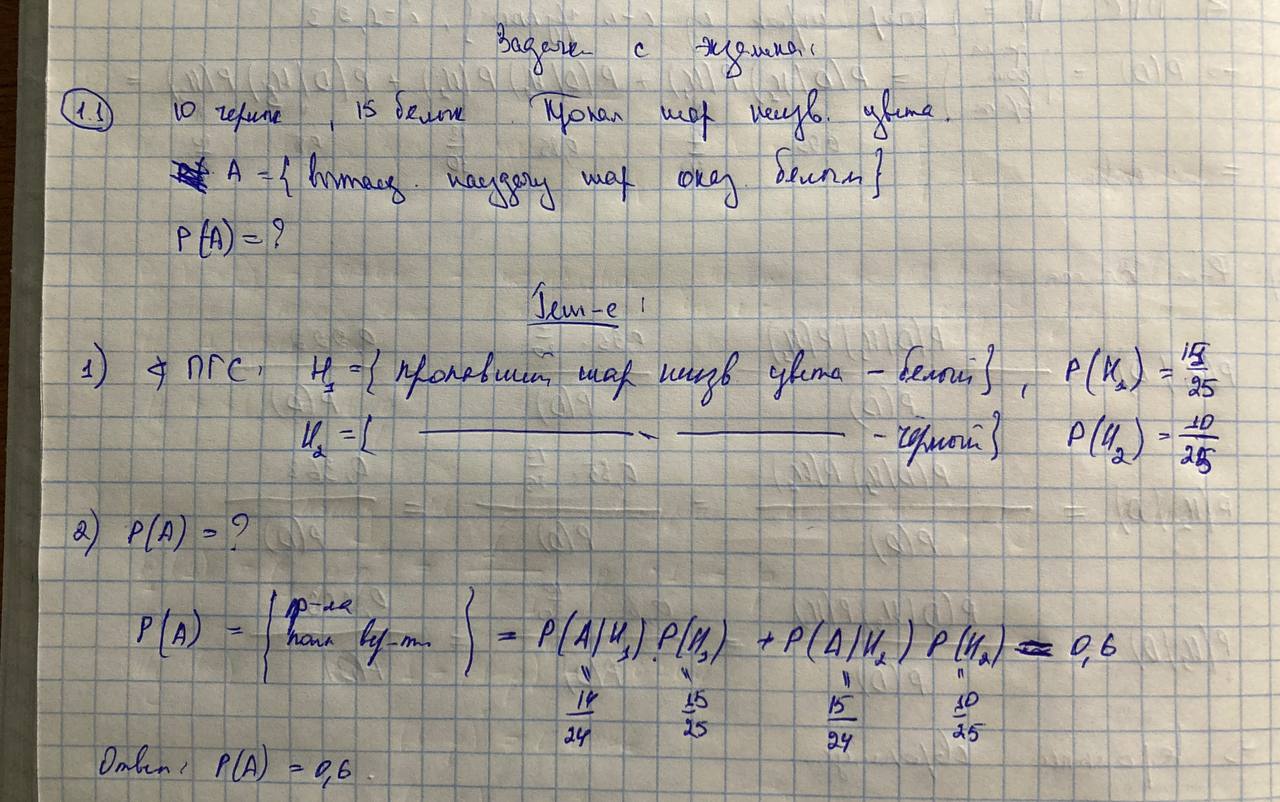 Задачи с экзамена:
1.1 10 черных, 15 белых. Пропал шар неизв. цвета.
A = { вытащ. наудачу шар оказ. белым }
P(A) = ?
Реш-е:
1) ∢ ПГС: H₁ = { пропавший шар неизв цвета - белый }, P(H₁) = 15/25
H₂ = { ———— " ———— - черный } P(H₂) = 10/25
2) P(A) = ?
P(A) = { ф-ла полн вер-ти } = P(A|H₁) · P(H₁) + P(A|H₂) P(H₂) = 0,6
" " " "
14/24 15/25 15/24 10/25
Ответ: P(A) = 0,6.